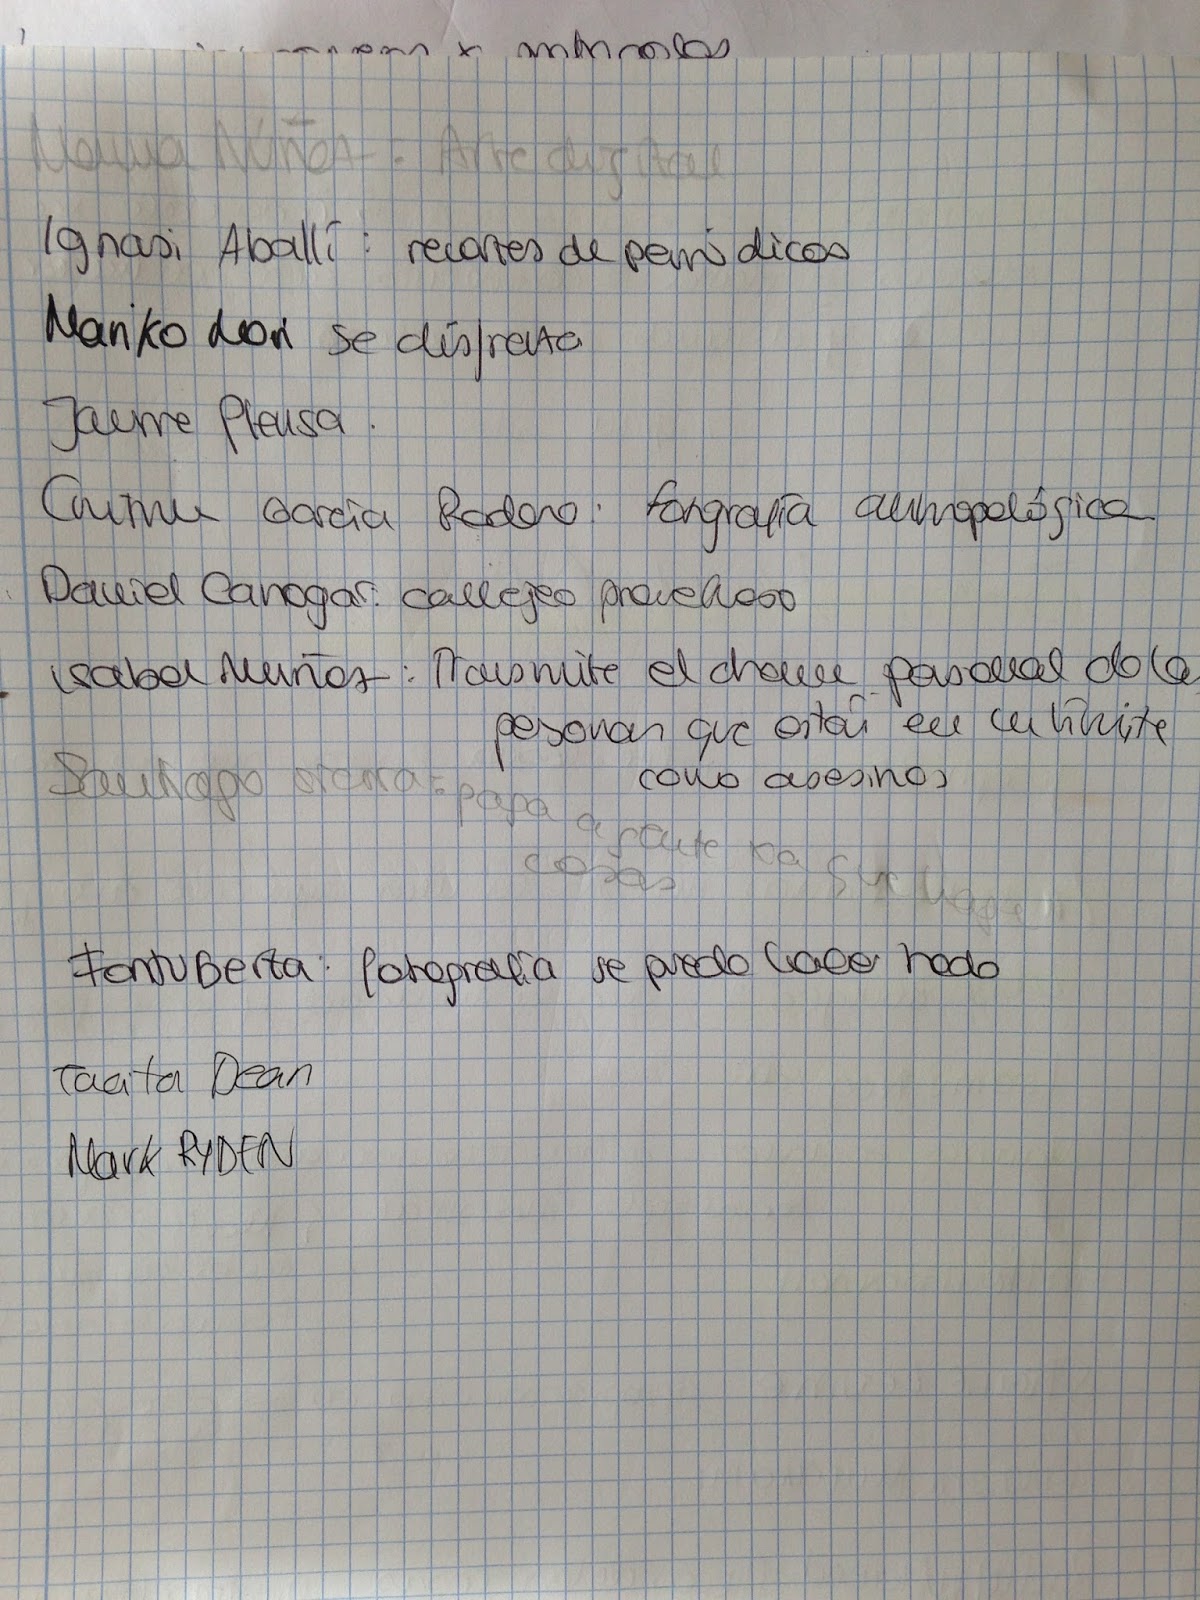 Núñez. Arte digital
Ignasi Aballí: recortes de periódicos
Mariko Mori se disfrata
Jaume Plensa.
García Rodero: fotografía antropológica
Daniel Canogar: callejeo provechoso
Isabel Muñoz: Transmite el drama personal de la
personas que están en un límite
como asesinos
Santiago Sierra: paga a gente xa que hagan
cosas
Fontuberta: fotografía se puede hacer todo
Tacita Dean
Mark RYDEN